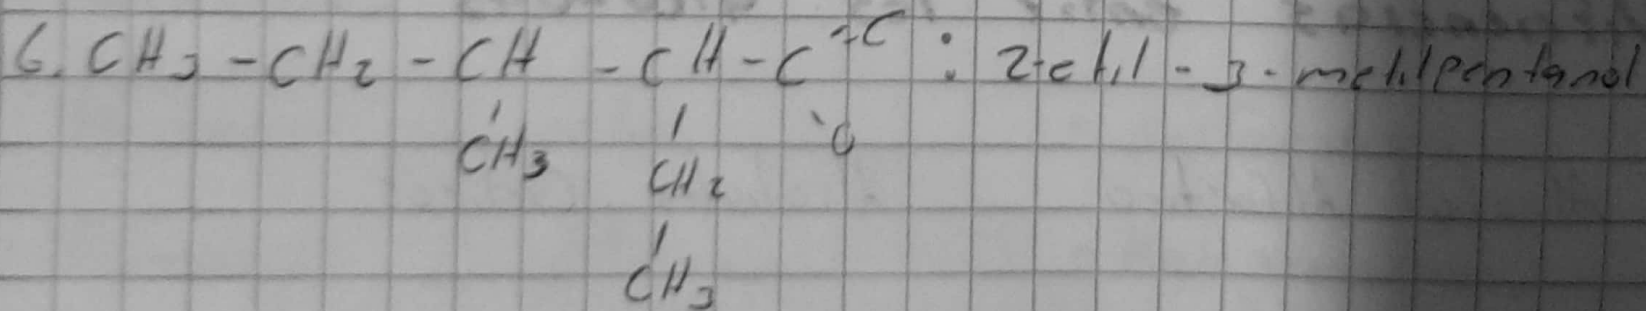 6. CH3 - CH2 - CH - CH - C = C : 2-etil - 3 - metilpentanol
CH3 CH2 C
CH3